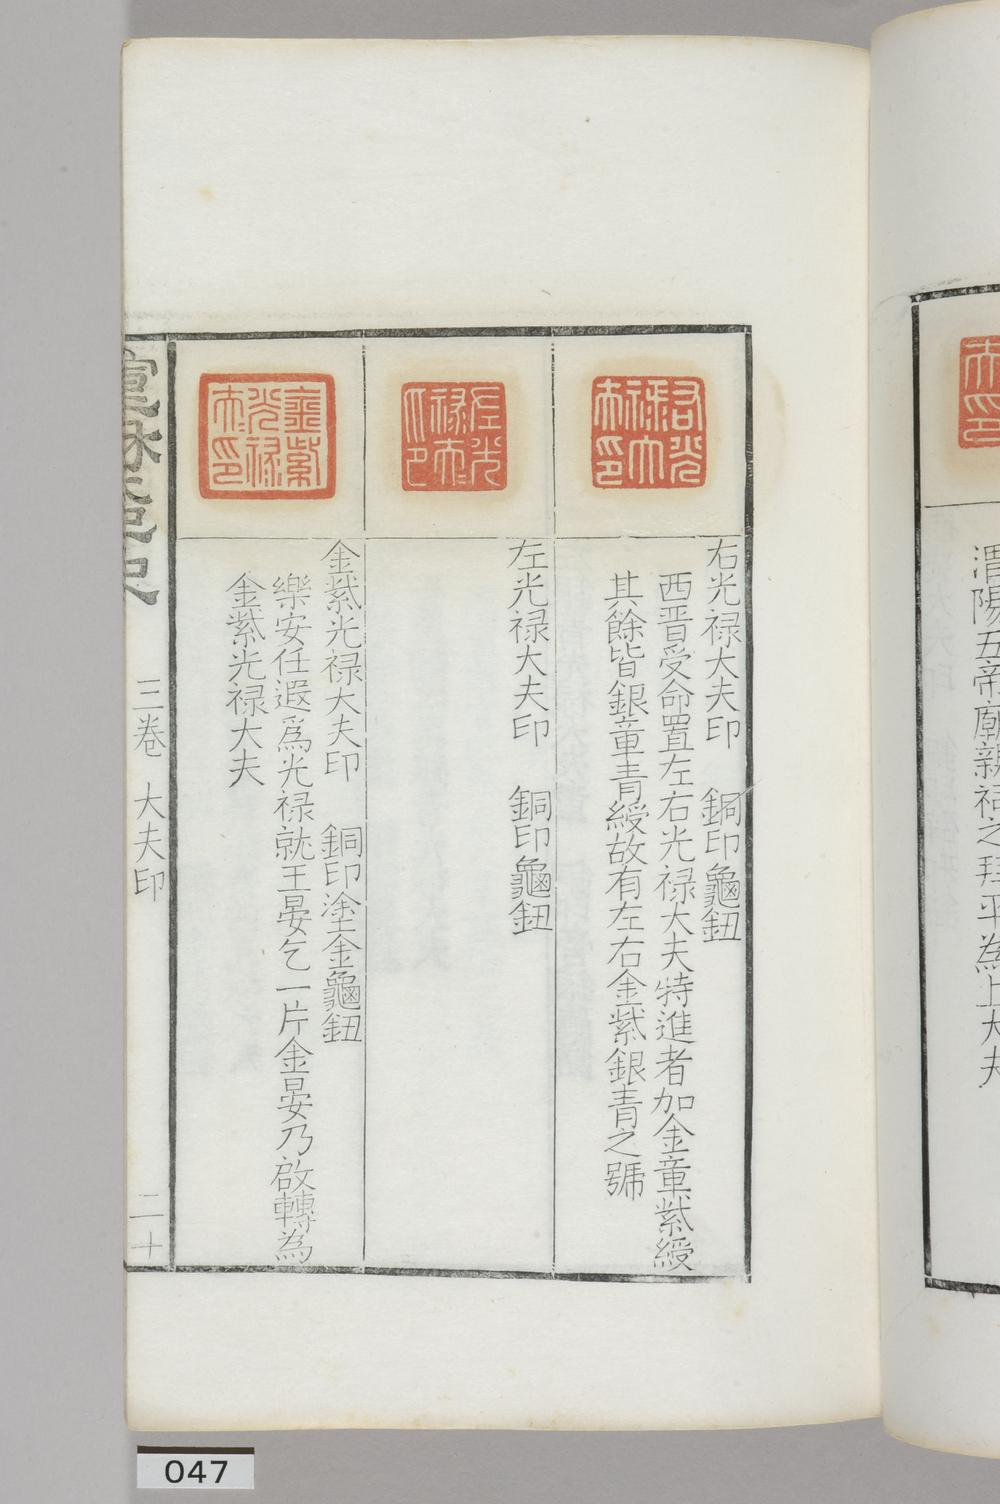 渭陽五帝廟親祠之拜平為上大夫
右光禄大夫印　銅印龜鈕
西晋受命置左右光禄大夫特進者加金章紫綬
其餘皆銀章青綬故有左右金紫銀青之號
左光禄大夫印　銅印龜鈕
金紫光禄大夫印　銅印塗金龜鈕
樂安任遐爲光禄就王晏乞一片金晏乃啟轉為
金紫光禄大夫
右光
禄大
夫印
左光
禄大夫
印
金紫
光禄
大夫印
三卷　大夫印
二十
047